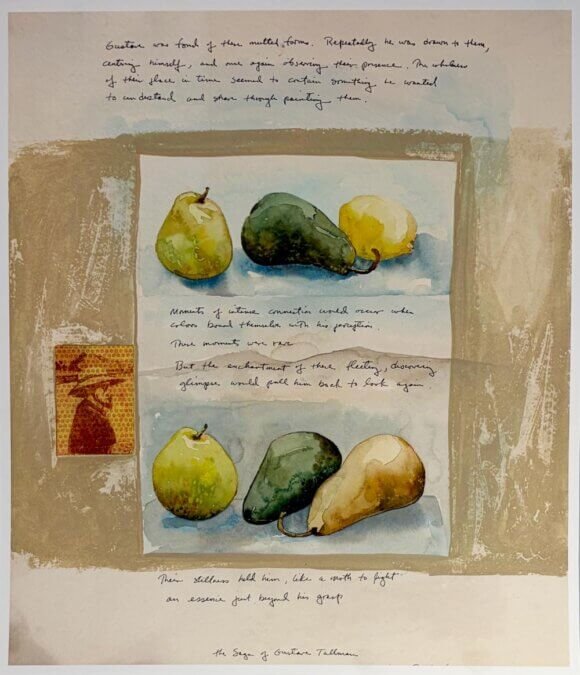 Gustave was fond of these muted forms. Repeatedly he was drawn to them,
centering himself, and once again observing their presence. The wholeness
of their place in time seemed to contain something he wanted
to understand and share through painting them.
Moments of intense connection would occur when
colors bound themselves with his perception.
These moments were rare
But the enchantment of these fleeting, discovering
glimpses would pull him back to look again.
Their stillness held him, like a moth to light
an essence just beyond his grasp
the Saga of Gustave Tallman